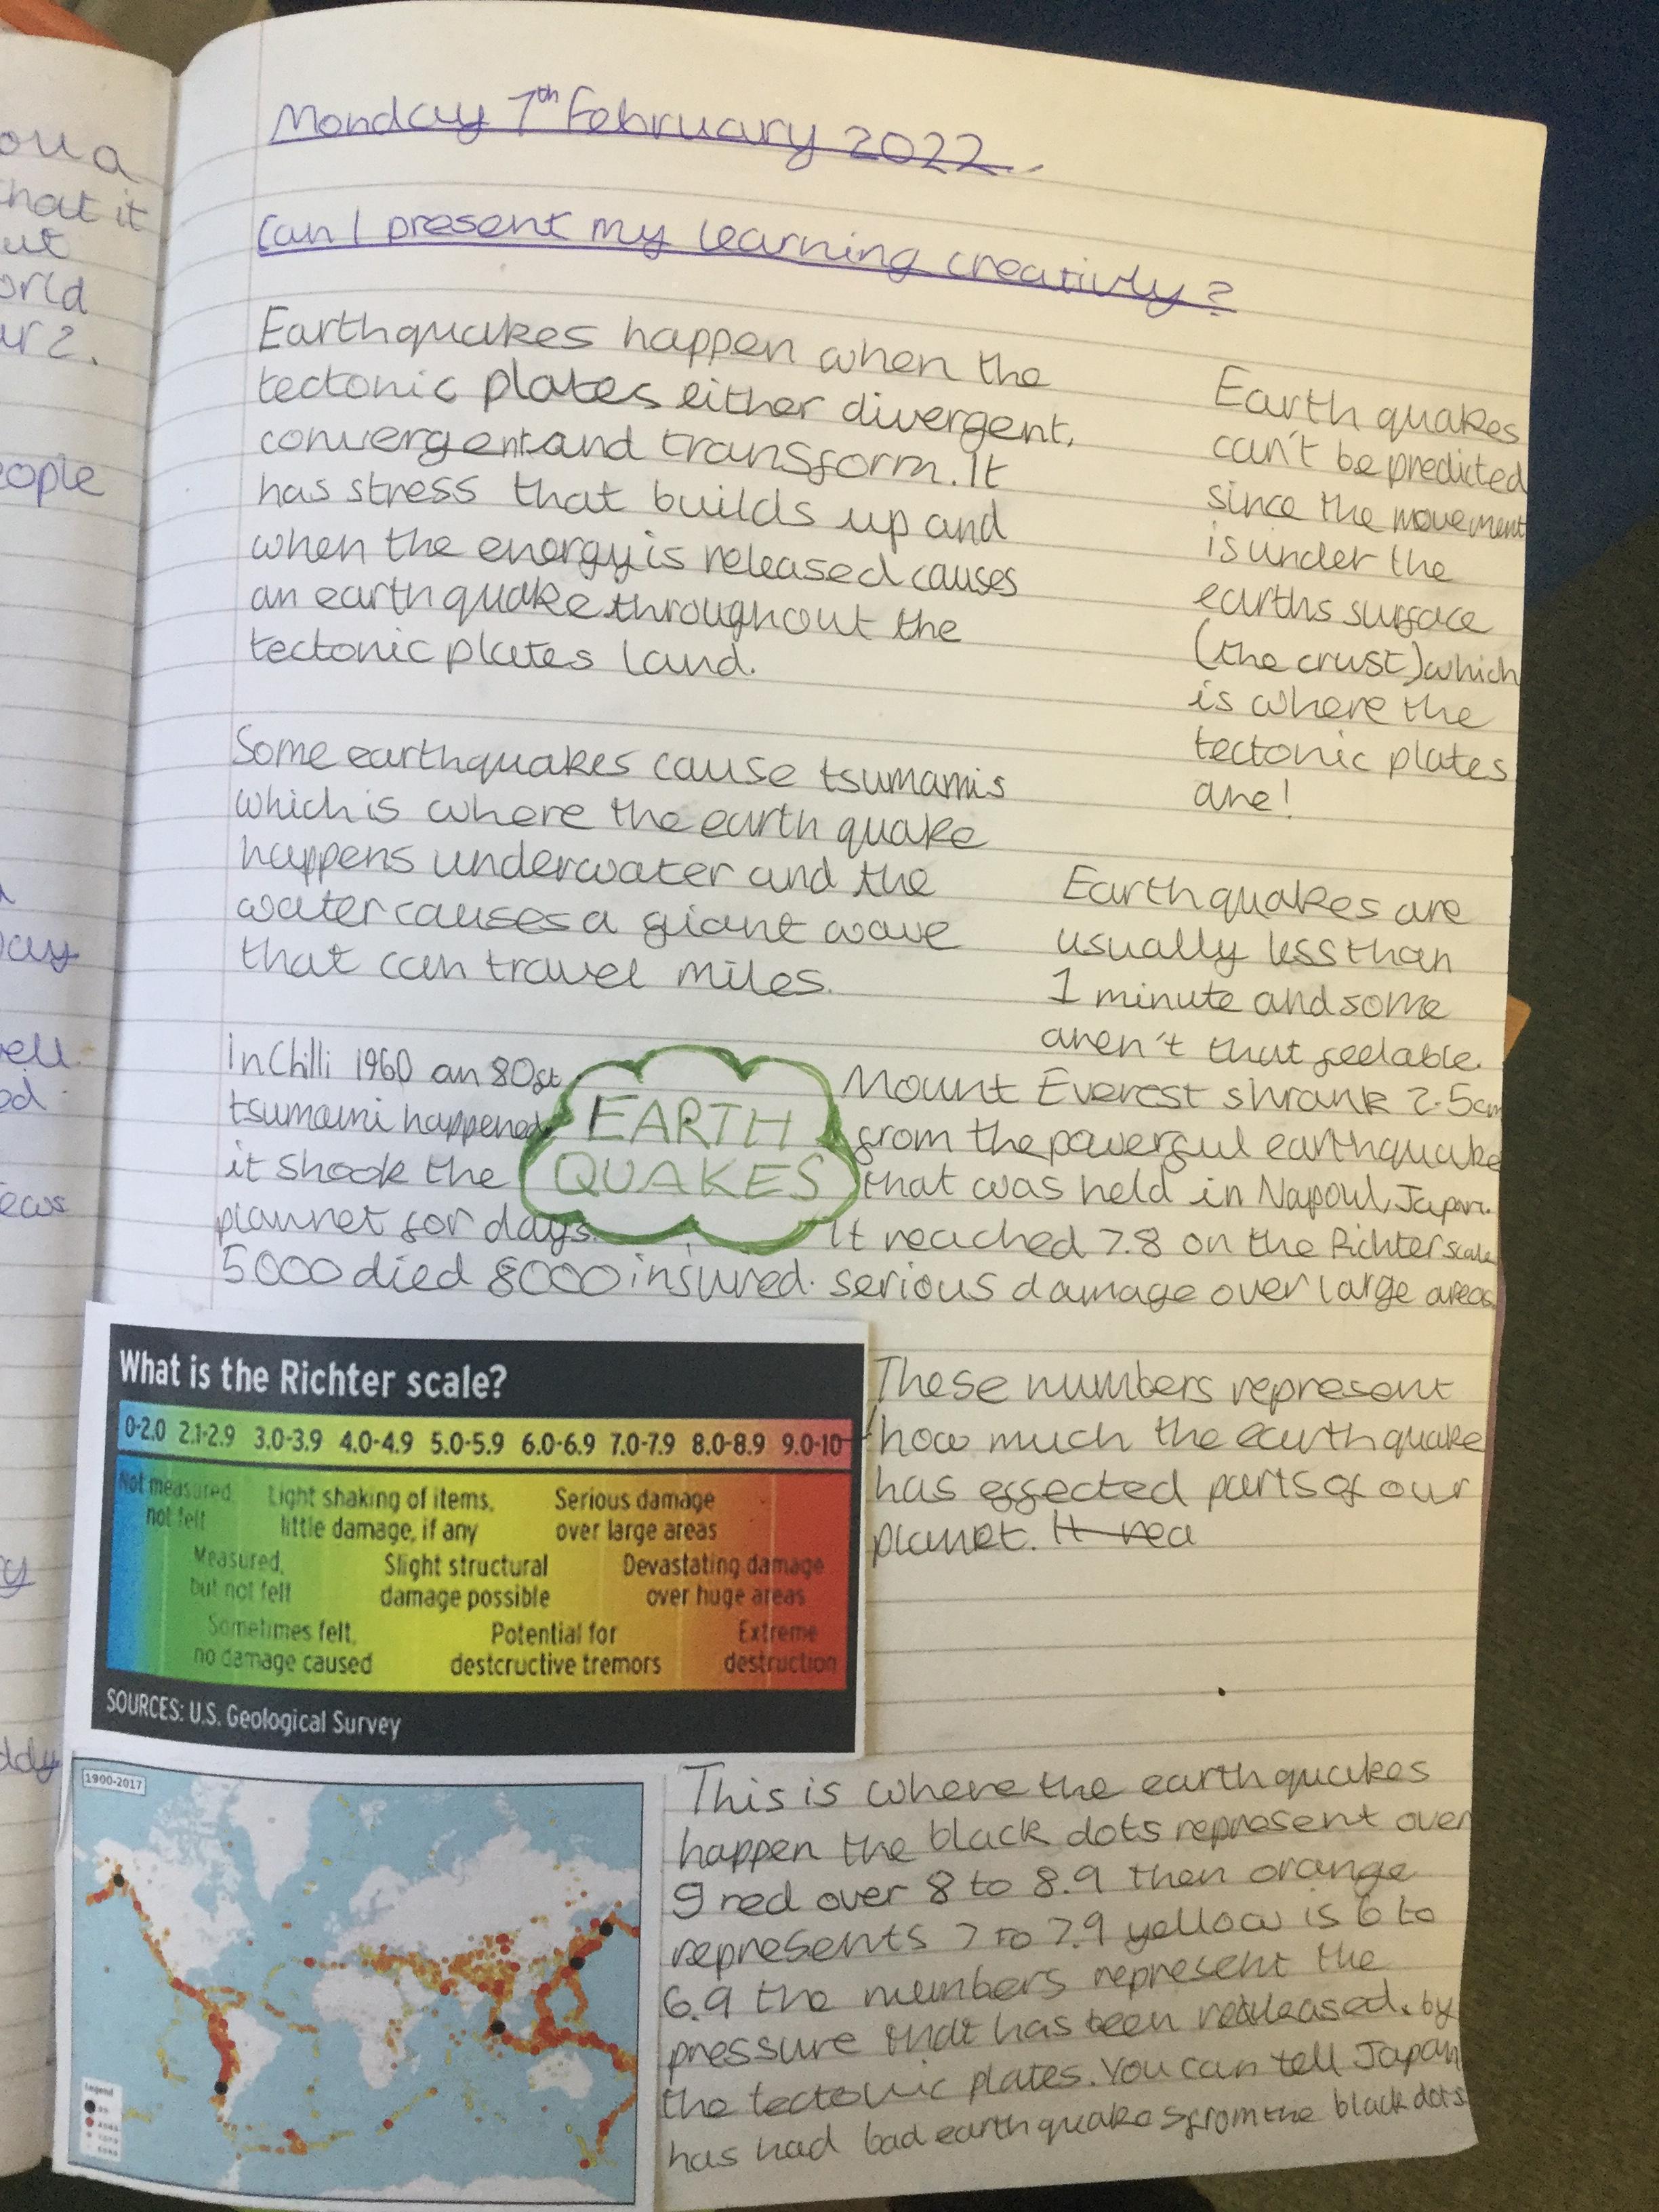 Monday 7th February 2022.
Can I present my learning creativly?
Earthquakes happen when the
tectonic plates either divergent,
convergent and transform. It
has stress that builds up and
when the energy is released causes
an earthquake throughout the
tectonic plates land.
Earthquakes
can't be predicted
since the movement
is under the
earths surface
(the crust) which
is where the
tectonic plates
are!
Some earthquakes cause tsumamis
which is where the earth quake
happens underwater and the
water causes a giant wave
that can travel miles.
Earthquakes are
usually less than
1 minute and some
aren't that feelable.
In Chilli 1960 an 80ft
tsumami happened
it shook the
plannet for days.
5000 died 8000 insured.
EARTH
QUAKES
Mount Everest shrank 2.5cm
from the powerful earthquake
that was held in Napoul, Japan.
It reached 7.8 on the Richter scale
serious damage over large areas.
What is the Richter scale?
0-2.0 2.1-2.9 3.0-3.9 4.0-4.9 5.0-5.9 6.0-6.9 7.0-7.9 8.0-8.9 9.0-10
Not measured, not felt
Light shaking of items, little damage, if any
Serious damage over large areas
Measured, but not felt
Slight structural damage possible
Devastating damage over huge areas
Sometimes felt, no damage caused
Potential for destcructive tremors
Extreme destruction
SOURCES: U.S. Geological Survey
These numbers represent
how much the earthquake
has effected parts of our
planet. It rea
1900-2017
Legend
This is where the earthquakes
happen the black dots represent over
9 red over 8 to 8.9 then orange
represents 7 to 7.9 yellow is 6 to
6.9 the numbers represent the
pressure that has been realeased. by
the tectonic plates. You can tell Japan
has had bad earthquakes from the black dots